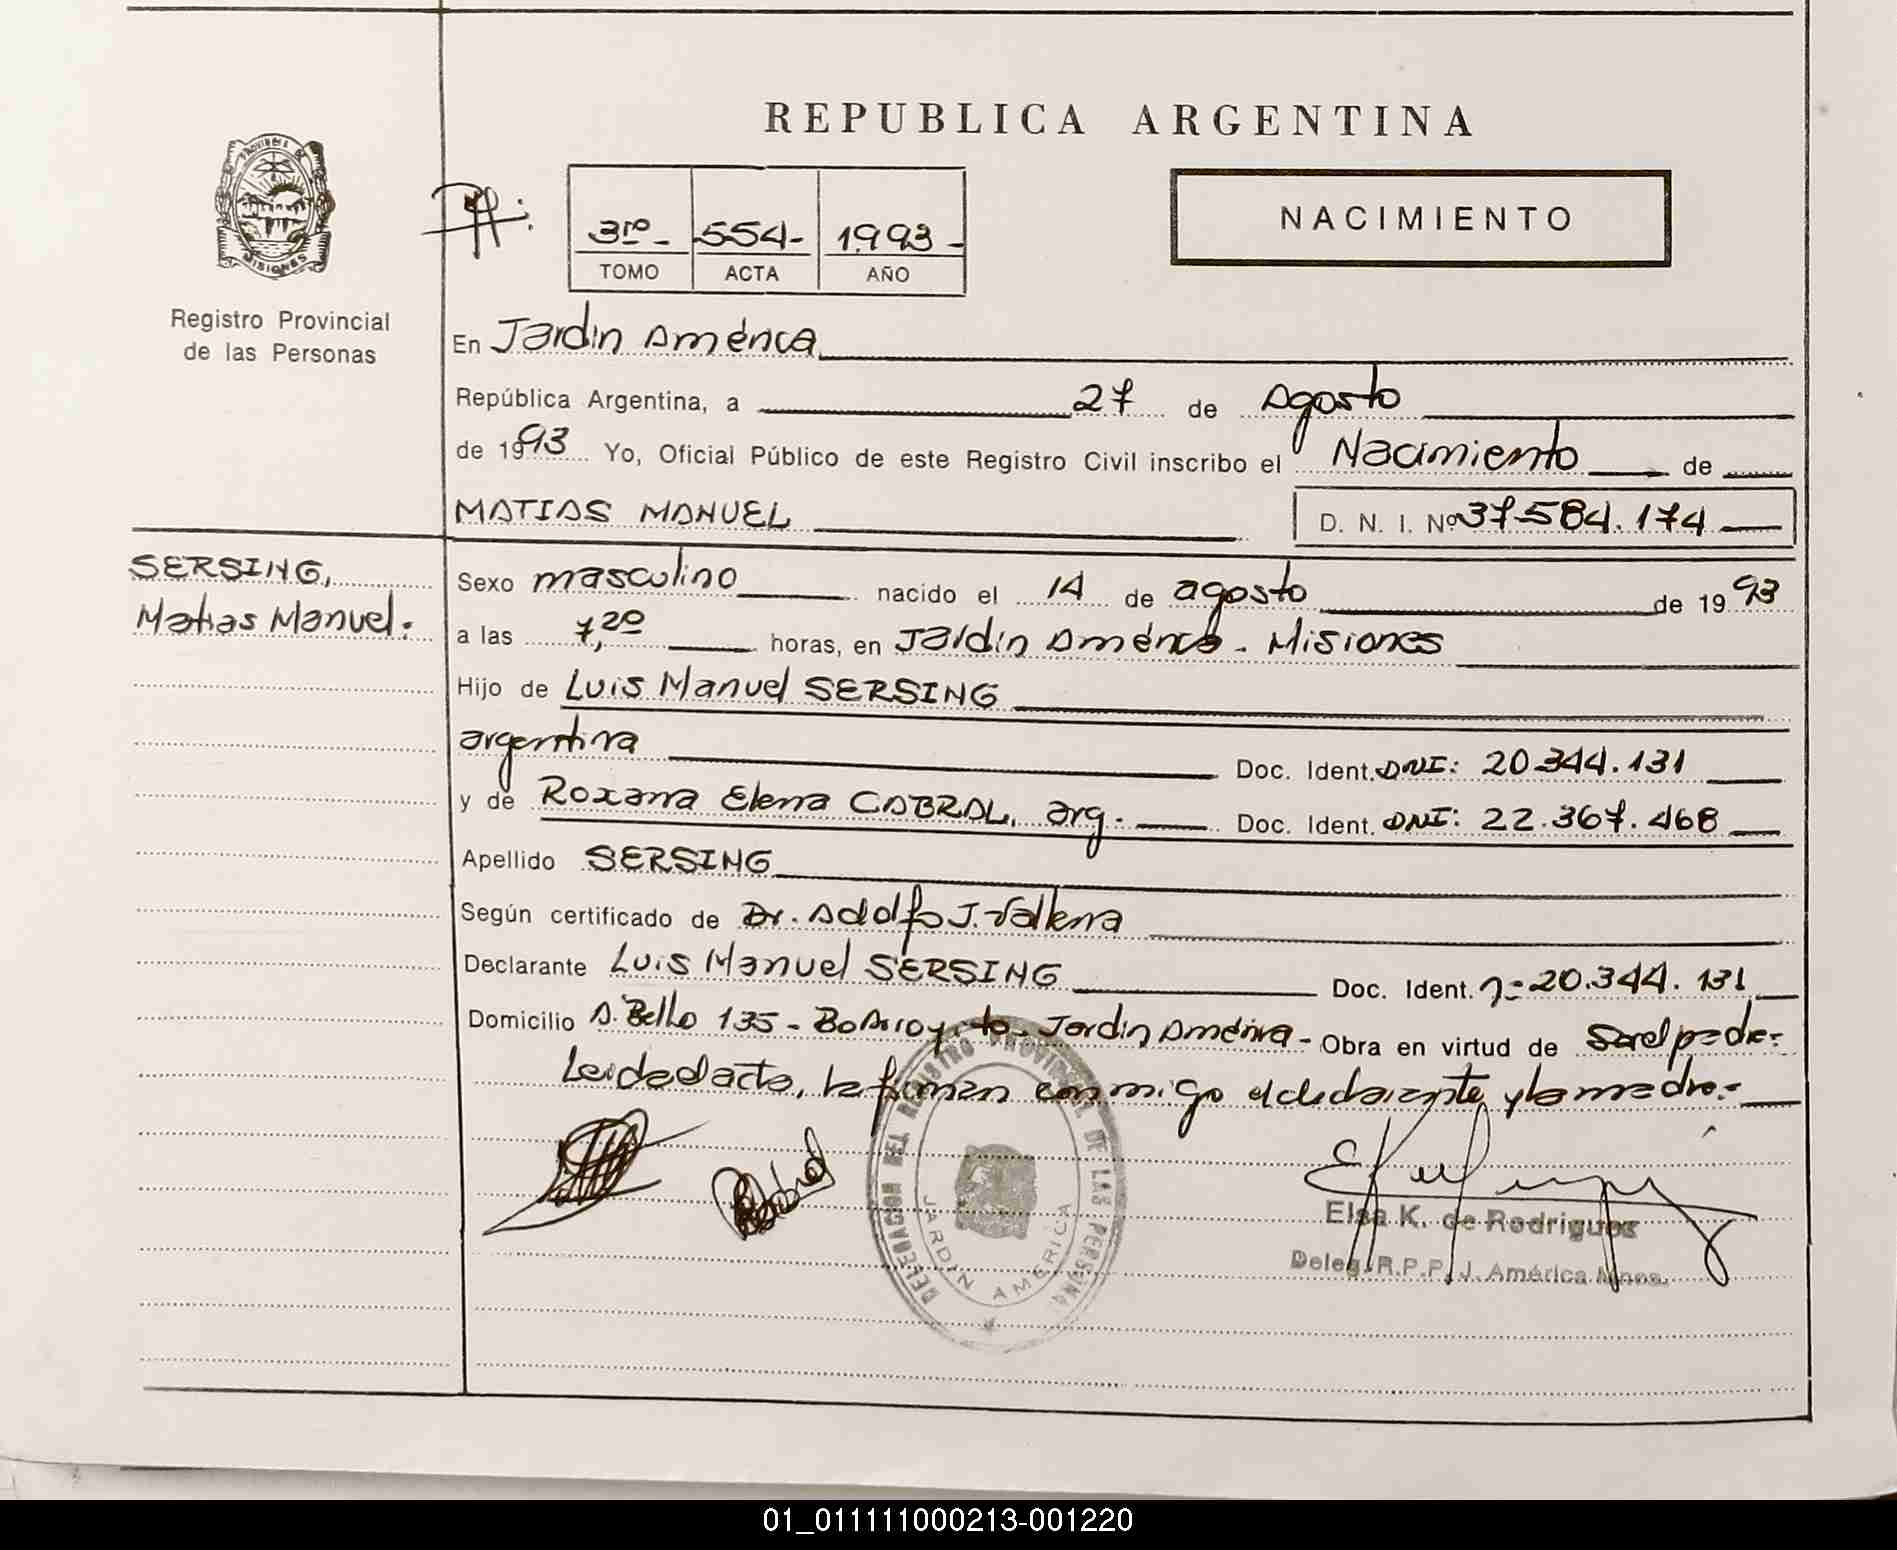 REPUBLICA ARGENTINA
PROVINCIA DE
MISIONES
Registro Provincial
de las Personas
3ro - 554 - 1993 -
TOMO ACTA AÑO
NACIMIENTO
En Jardín América
República Argentina, a 27 de Agosto
de 1993 Yo, Oficial Público de este Registro Civil inscribo el Nacimiento de
MATIAS MANUEL D. N. I. Nº 37.584.174
SERSING,
Matias Manuel.
Sexo masculino nacido el 14 de agosto de 1993
a las 7,20 horas, en Jardín América - Misiones
Hijo de Luis Manuel SERSING
argentina Doc. Ident. DNI: 20.344.131
y de Roxana Elena CABRAL, arg. Doc. Ident. DNI: 22.367.468
Apellido SERSING
Según certificado de Dr. Adolfo J.
Declarante Luis Manuel SERSING Doc. Ident. 20.344.131
Domicilio A. Bello 135 - Bo Arroyito - Jardín América - Obra en virtud de Ser el padre.
Leida el acta, la firman conmigo el declarante y la madre.-
DELEGACION DEL REGISTRO PROVINCIAL DE LAS PERSONAS
JARDIN AMERICA
Elsa K. de Rodriguez
Deleg. R.P.P. J. América Mnes.
01_011111000213-001220